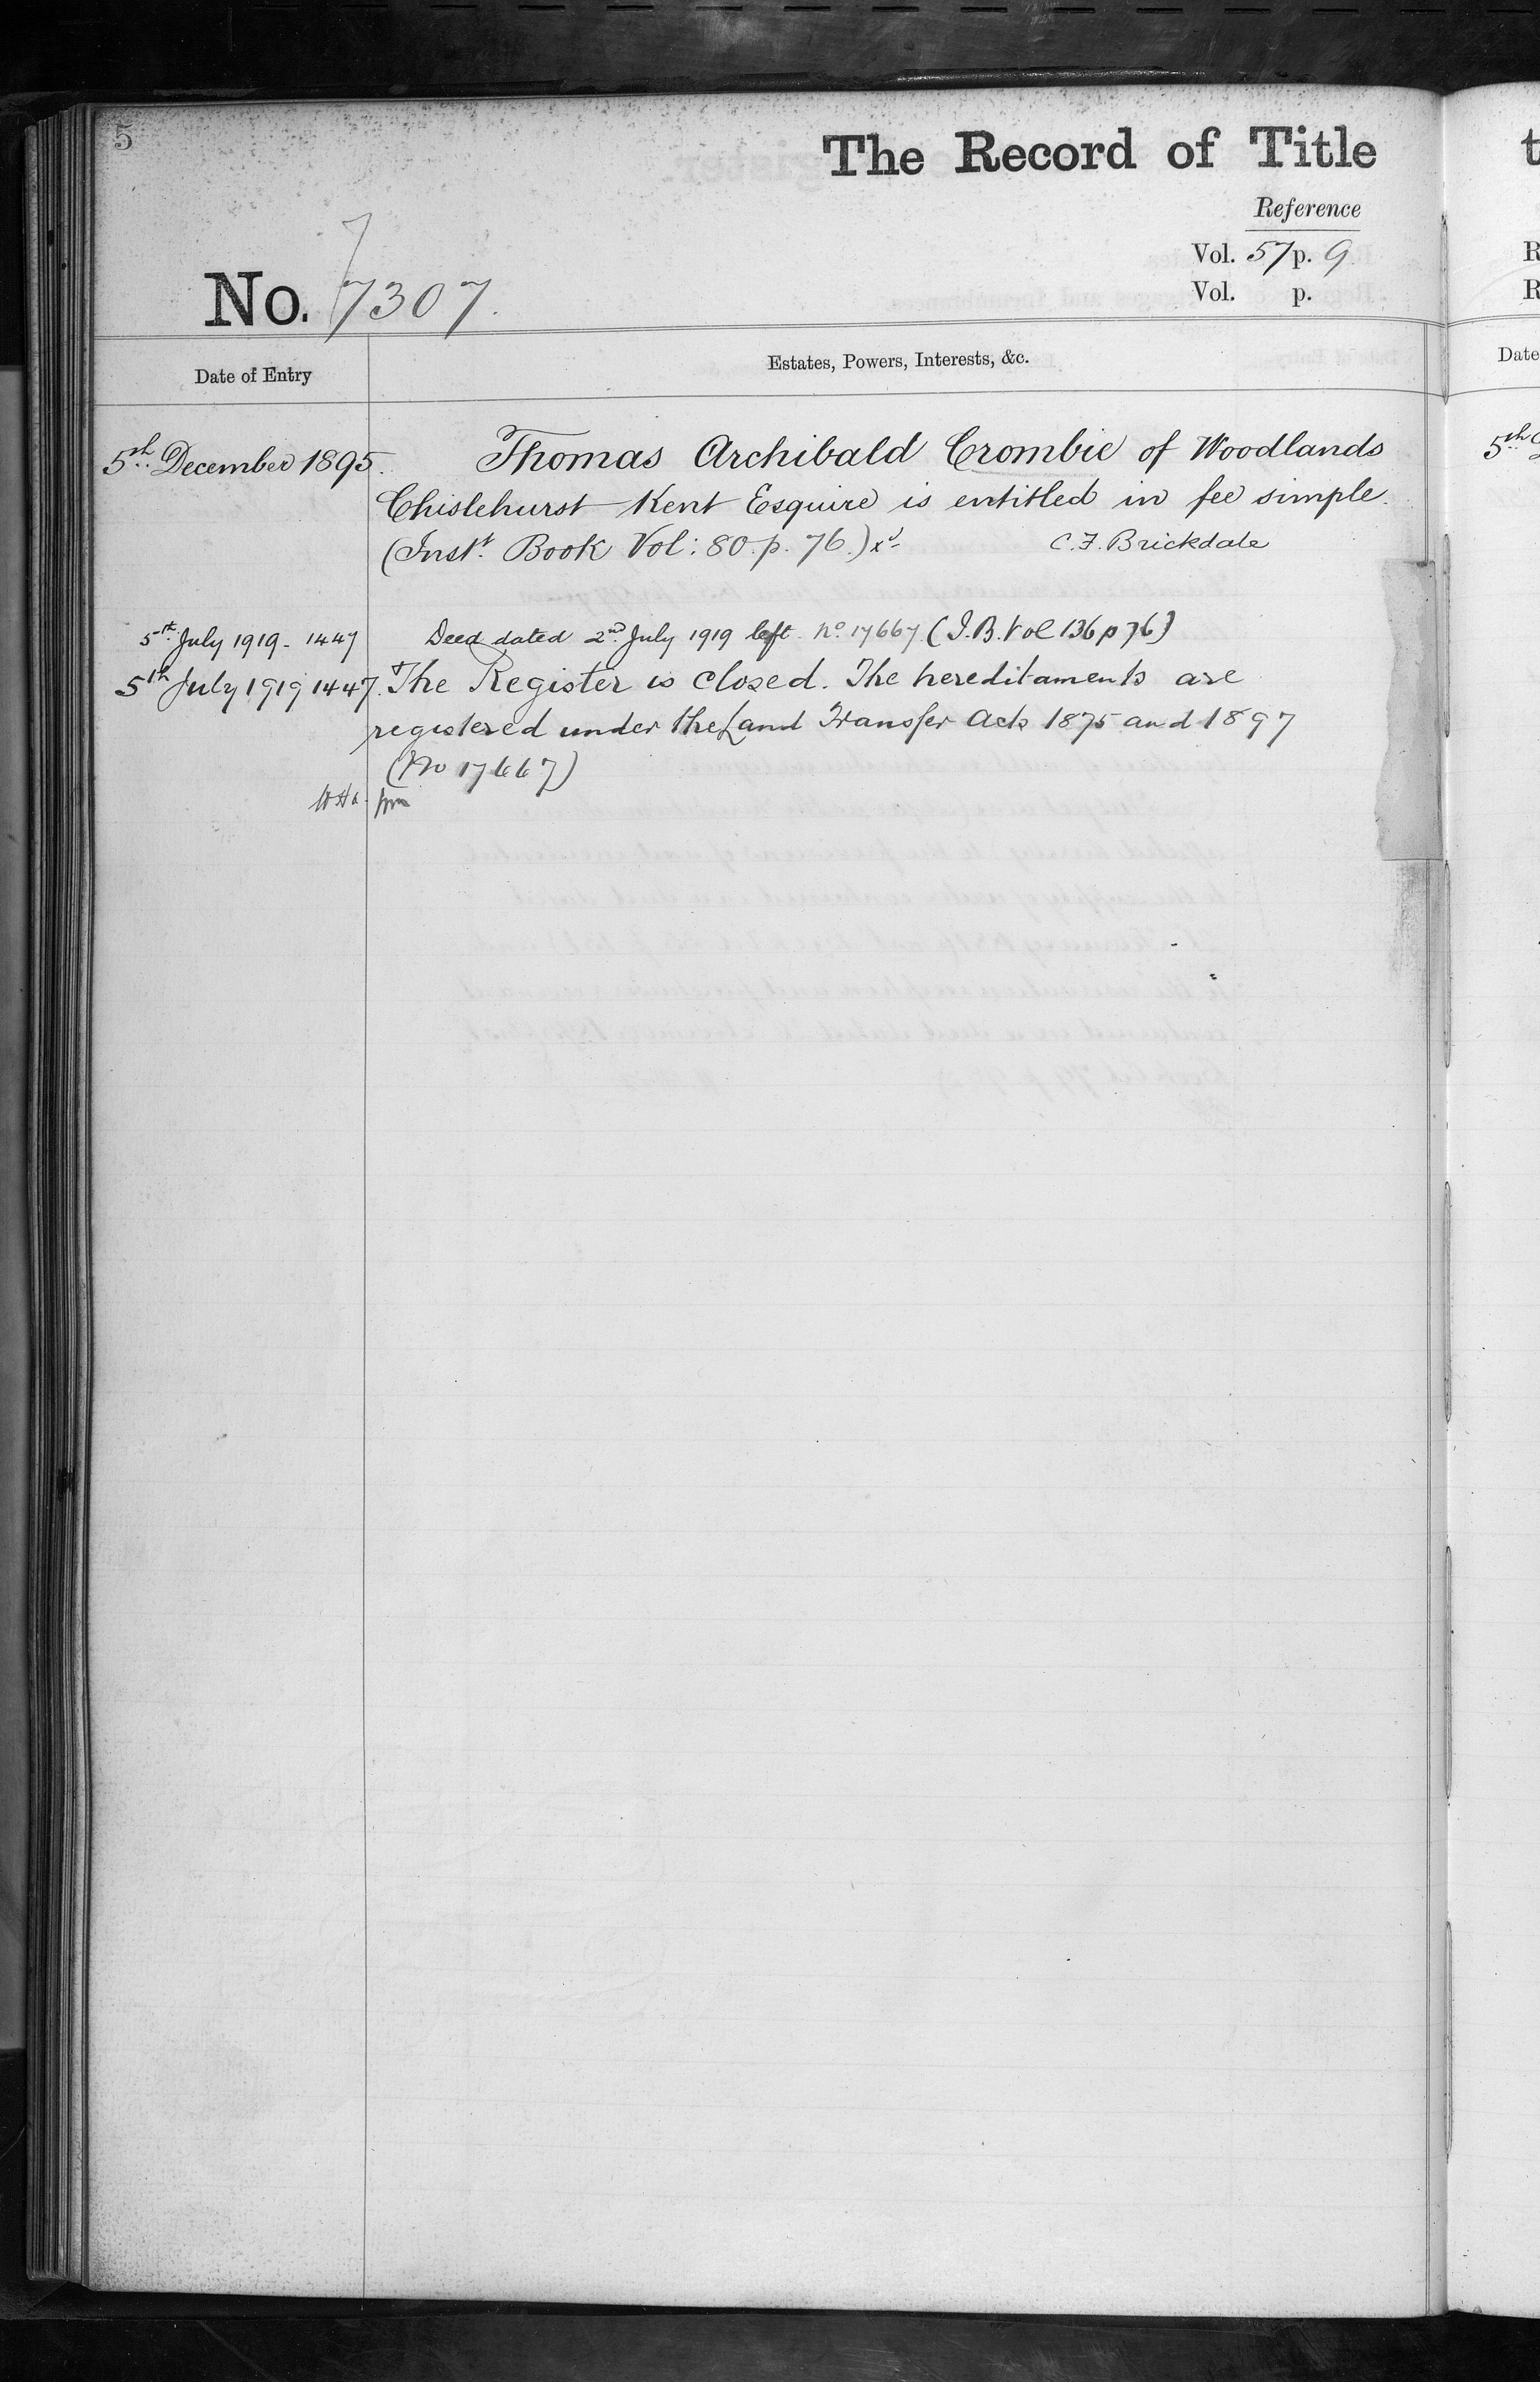 5
The Record of Title
Reference
Vol. 57 p. 9
Vol. p.
No. 7307.
Date of Entry
Estates, Powers, Interests, &c.
5th. December 1895. Thomas Archibald Crombie of Woodlands
Chislehurst Kent Esquire is entitled in fee simple.
(Inst. Book Vol: 80. p. 76.) xd C. F. Brickdale
5th. July 1919 - 1447 Deed dated 2nd July 1919 left No 17667. (I.B. Vol 136 p 76)
5th July 1919 1447. The Register is closed. The hereditaments are
registered under the Land Transfer Acts 1875 and 1897
(No 17667)
t
R
R
Date
5th